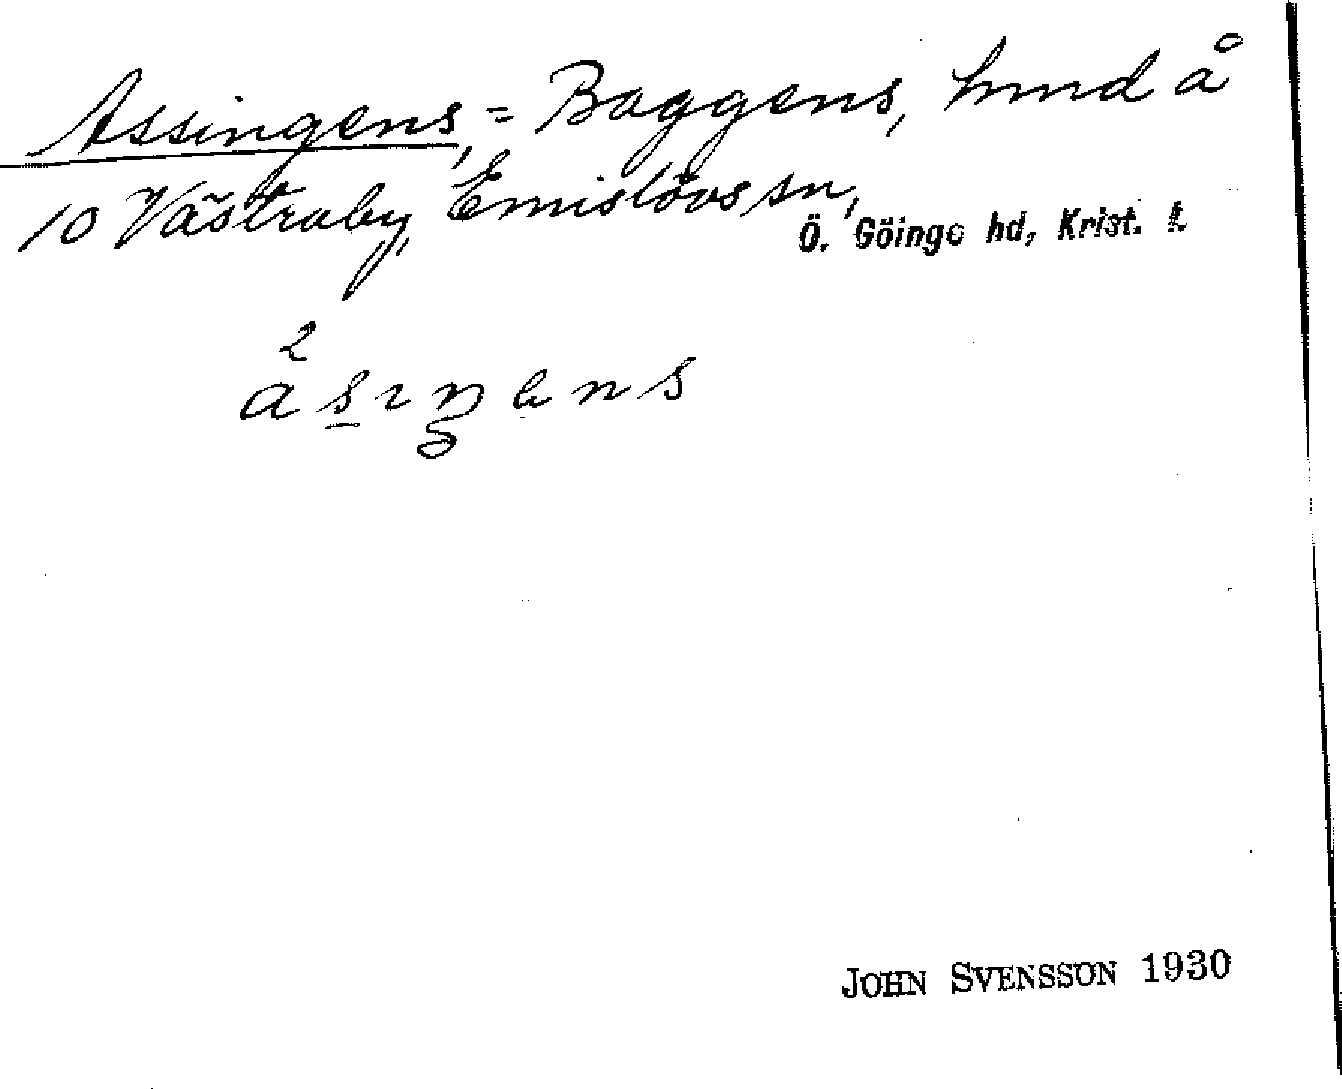 Assingens, = Baggens, hmd å
10 Västraby, Emislövs sn,
Ö. Göinge hd, Krist. l.
åsiŋens
JOHN SVENSSON 1930